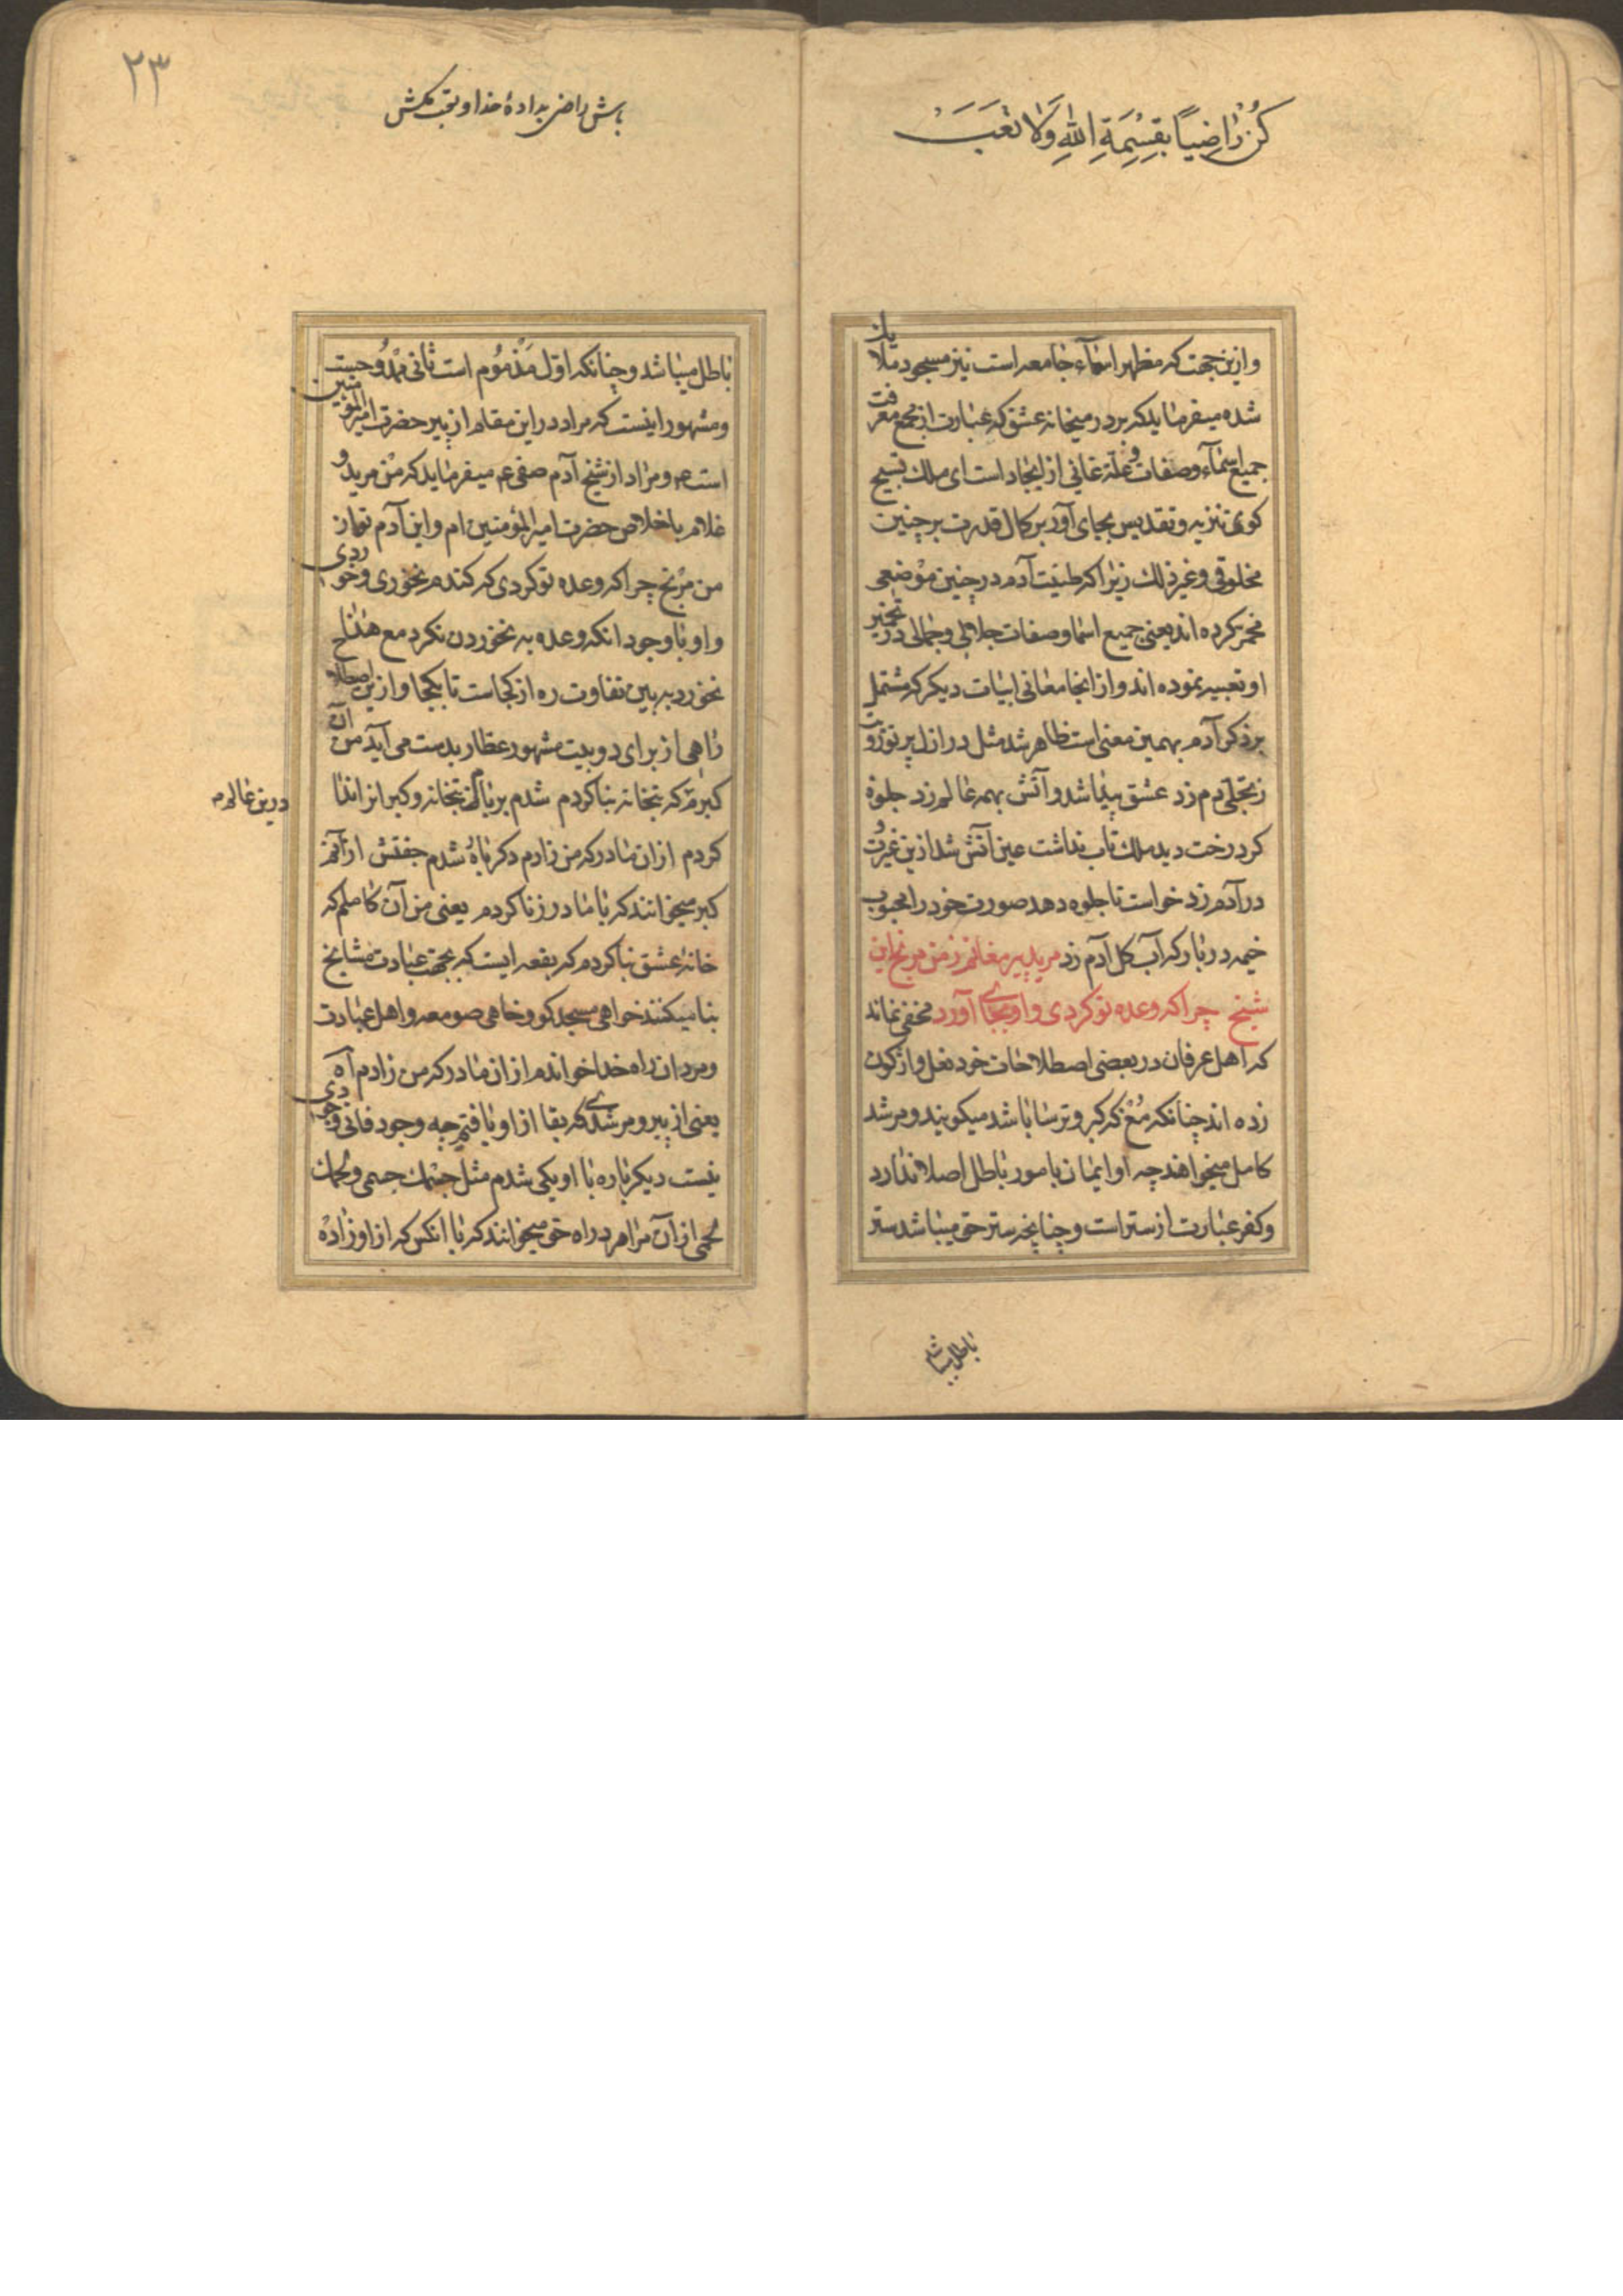 كُنْ رٰاضِیاً بِقِسْمَةِ اللّٰهِ وَلٰا تَعَبَ
وازین جهت که مظهر اسمآء جامعه است نیز مسجود ملایک
شده میفرماید که بر در میخانه عشق که عبارت از مجمع معرفت
جمیع اسمآء وصفات و علّة غائی از ایجاد است ای ملک تسبیح
کوی تنزیه و تقدیس بجای آور بر کمال قدرت بر چنین
مخلوقی وغیر ذلک زیرا که طینت آدم در چنین موضعی
مخمر کرده اند یعنی جمیع اسما وصفات جلالی وجمالی در تخمیر
او تعبیه نموده اند و از اینجا معانی ابیات دیکر که مشتمل
بر ذکر آدم بهمین معنی است ظاهر شد مثل در ازل پرتو
ز تجلّی دم زد عشق پیدا شد و آتش بهمه عالم زد جلوۀ
کرد رخت دید ملک تاب نداشت عین آتش شد ازین غیرت و
در آدم زد خواست تا جلوه دهد صورت خود را محبوب
خیمه در با که آب کل آدم زد مرید پیر مغانم ز من مرنج این
شیخ چرا که وعده تو کردی و او بجای آورد مخفی نماند
که اهل عرفان در بعضی اصطلاحات خود نعل واژکون
زده اند چنانکه مُغ که کبر و ترسا باشد میکویند و مرشد
کامل میخواهند چه او ایمان بامور باطل اصلا ندارد
وکفر عبارت از ستر است و چنانچه ستر حق میباشد ستر
باطل میباشد
۲۳
باش راضی بدادۀ خدا و تعب مکش
باطل میباشد و چنانکه اوّل مَذْمُوم است ثانی
ومشهور اینست که مراد در این مقام از پیر حضرت امیرالمؤمنین
است ع ومراد از شیخ آدم صفی ع میفرماید که من مرید و
غلام باخلاص حضرت امیرالمؤمنین ام واین آدم تو از
من مرنج چرا که وعده تو کردی که کندم نخوری و خوردی
واو با وجود انکه وعده به نخوردن نکرد مع هذا
نخورد به بین تفاوت ره از کجاست تا بکجا و ازین اصطلاح
راهی از برای دو بیت مشهور عطار بدست می آید من آن
کبرم که بتخانه بنا کردم شدم بر بام بتخانه و کبرانرا ندا
درین عالم
کردم از ان مادر که من زادم دکر باره شدم جفتش از آنم
کبر میخوانند که با مادر زنا کردم یعنی من آن کاملم که
خانۀ عشق بنا کردم که بقعه ایست که بجهت عبادت مشایخ
بنا میکنند خواهی مسجد کو و خواهی صومعه و اهل عبادت
ومردان راه خدا خواندم از ان مادر که من زادم آه
یعنی از پیر و مرشدی که بقا از او یافتم چه وجود فانی وجودی
نیست دیکر باره با او یکی شدم مثل جسمک جسمی و لحمک
لحمی از آن مرا هم در راه حق میخوانند که با انکس که از او زاده